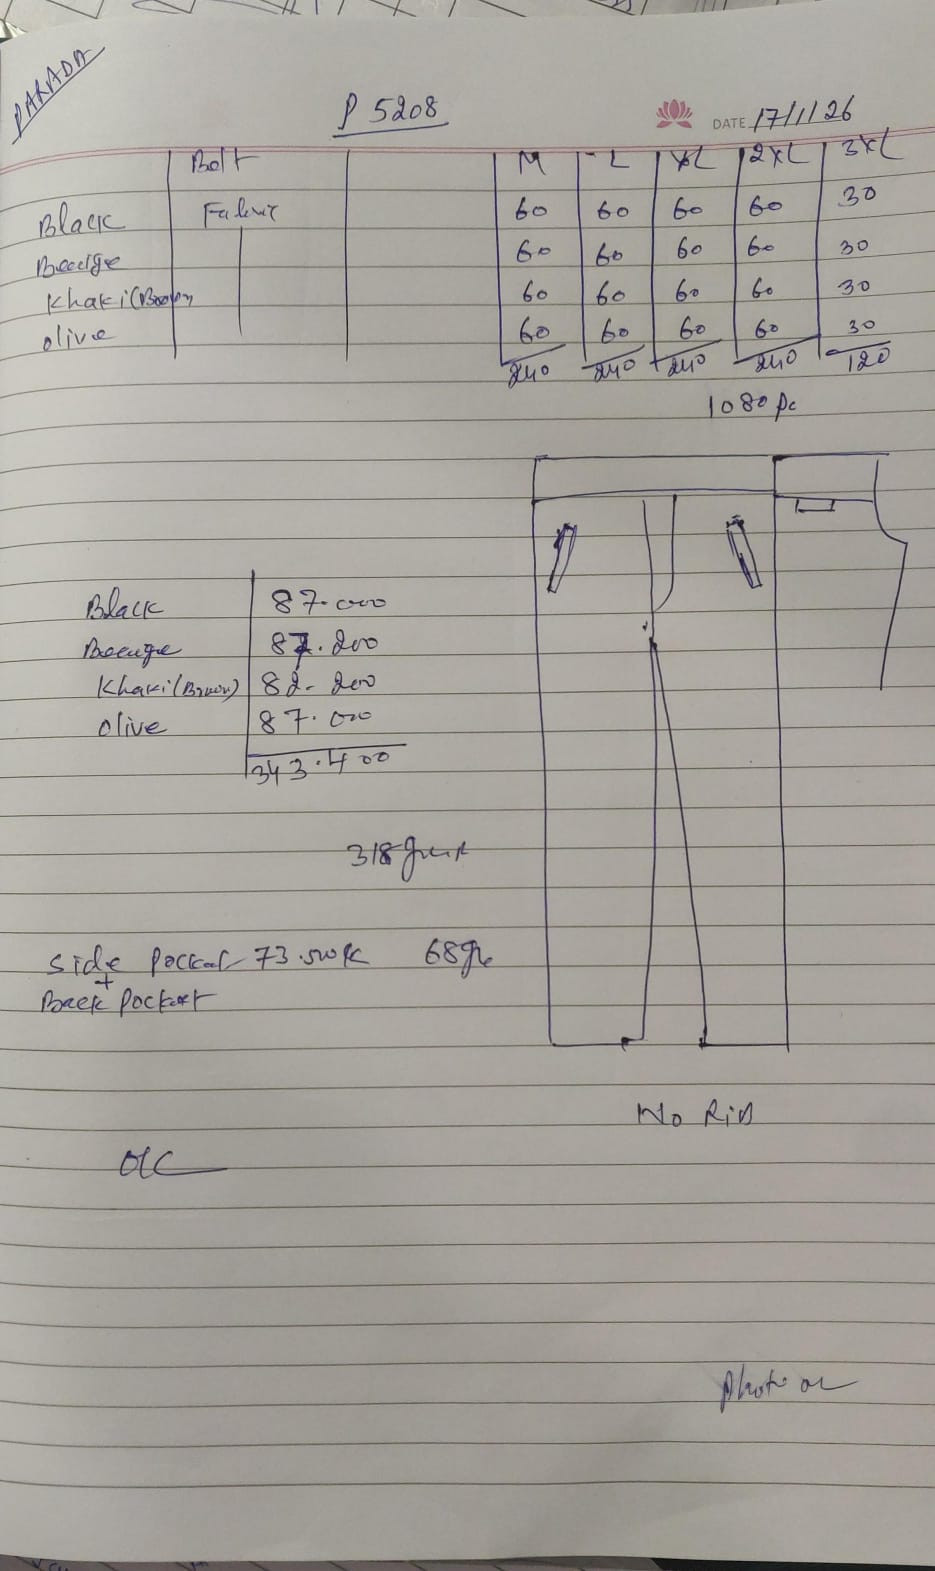 PARADA
P 5208
DATE 17/1/26
Belt M L XL 2XL 3XL
Black Fabric 60 60 60 60 30
Beeige 60 60 60 60 30
Khaki (Brown) 60 60 60 60 30
olive 60 60 60 60 30
240 240 240 240 120
1080 Pc
Black 87.000
Beeuge 87.200
Khaki (Brown) 82.200
olive 87.000
343.400
318
Side Pocket 73. 68
+
Back Pocket
No Rib
Photo